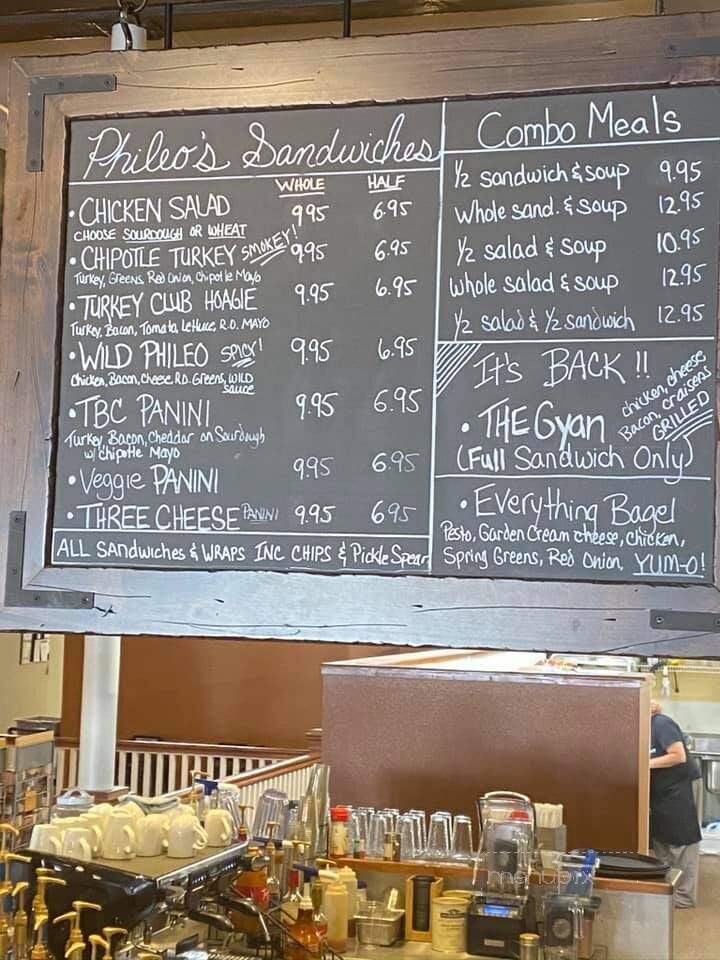 Phileo's Sandwiches
WHOLE HALF
• CHICKEN SALAD 9.95 6.95
CHOOSE SOURDOUGH OR WHEAT
• CHIPOTLE TURKEY SMOKEY! 9.95 6.95
Turkey, Greens, Red Onion, Chipotle Mayo
• TURKEY CLUB HOAGIE 9.95 6.95
Turkey, Bacon, Tomato, Lettuce, R.O. MAYO
• WILD PHILEO SPICY! 9.95 6.95
Chicken, Bacon, Cheese, R.O. Greens, WILD
SAUCE
• TBC PANINI 9.95 6.95
Turkey, Bacon, Cheddar on Sourdough
w/ chipotle Mayo
• Veggie PANINI 9.95 6.95
• THREE CHEESE PANINI 9.95 6.95
ALL SANDwiches & WRAPS INC CHIPS & Pickle Spear
Combo Meals
1/2 sandwich & soup 9.95
Whole sand. & soup 12.95
1/2 salad & soup 10.95
whole salad & soup 12.95
1/2 salad & 1/2 sandwich 12.95
It's BACK !!
• THE Gyan
chicken, cheese
Bacon, craisens
GRILLED
(Full Sandwich Only)
• Everything Bagel
Pesto, Garden Cream cheese, chicken,
Spring Greens, Red Onion, YUM-O!
menupix